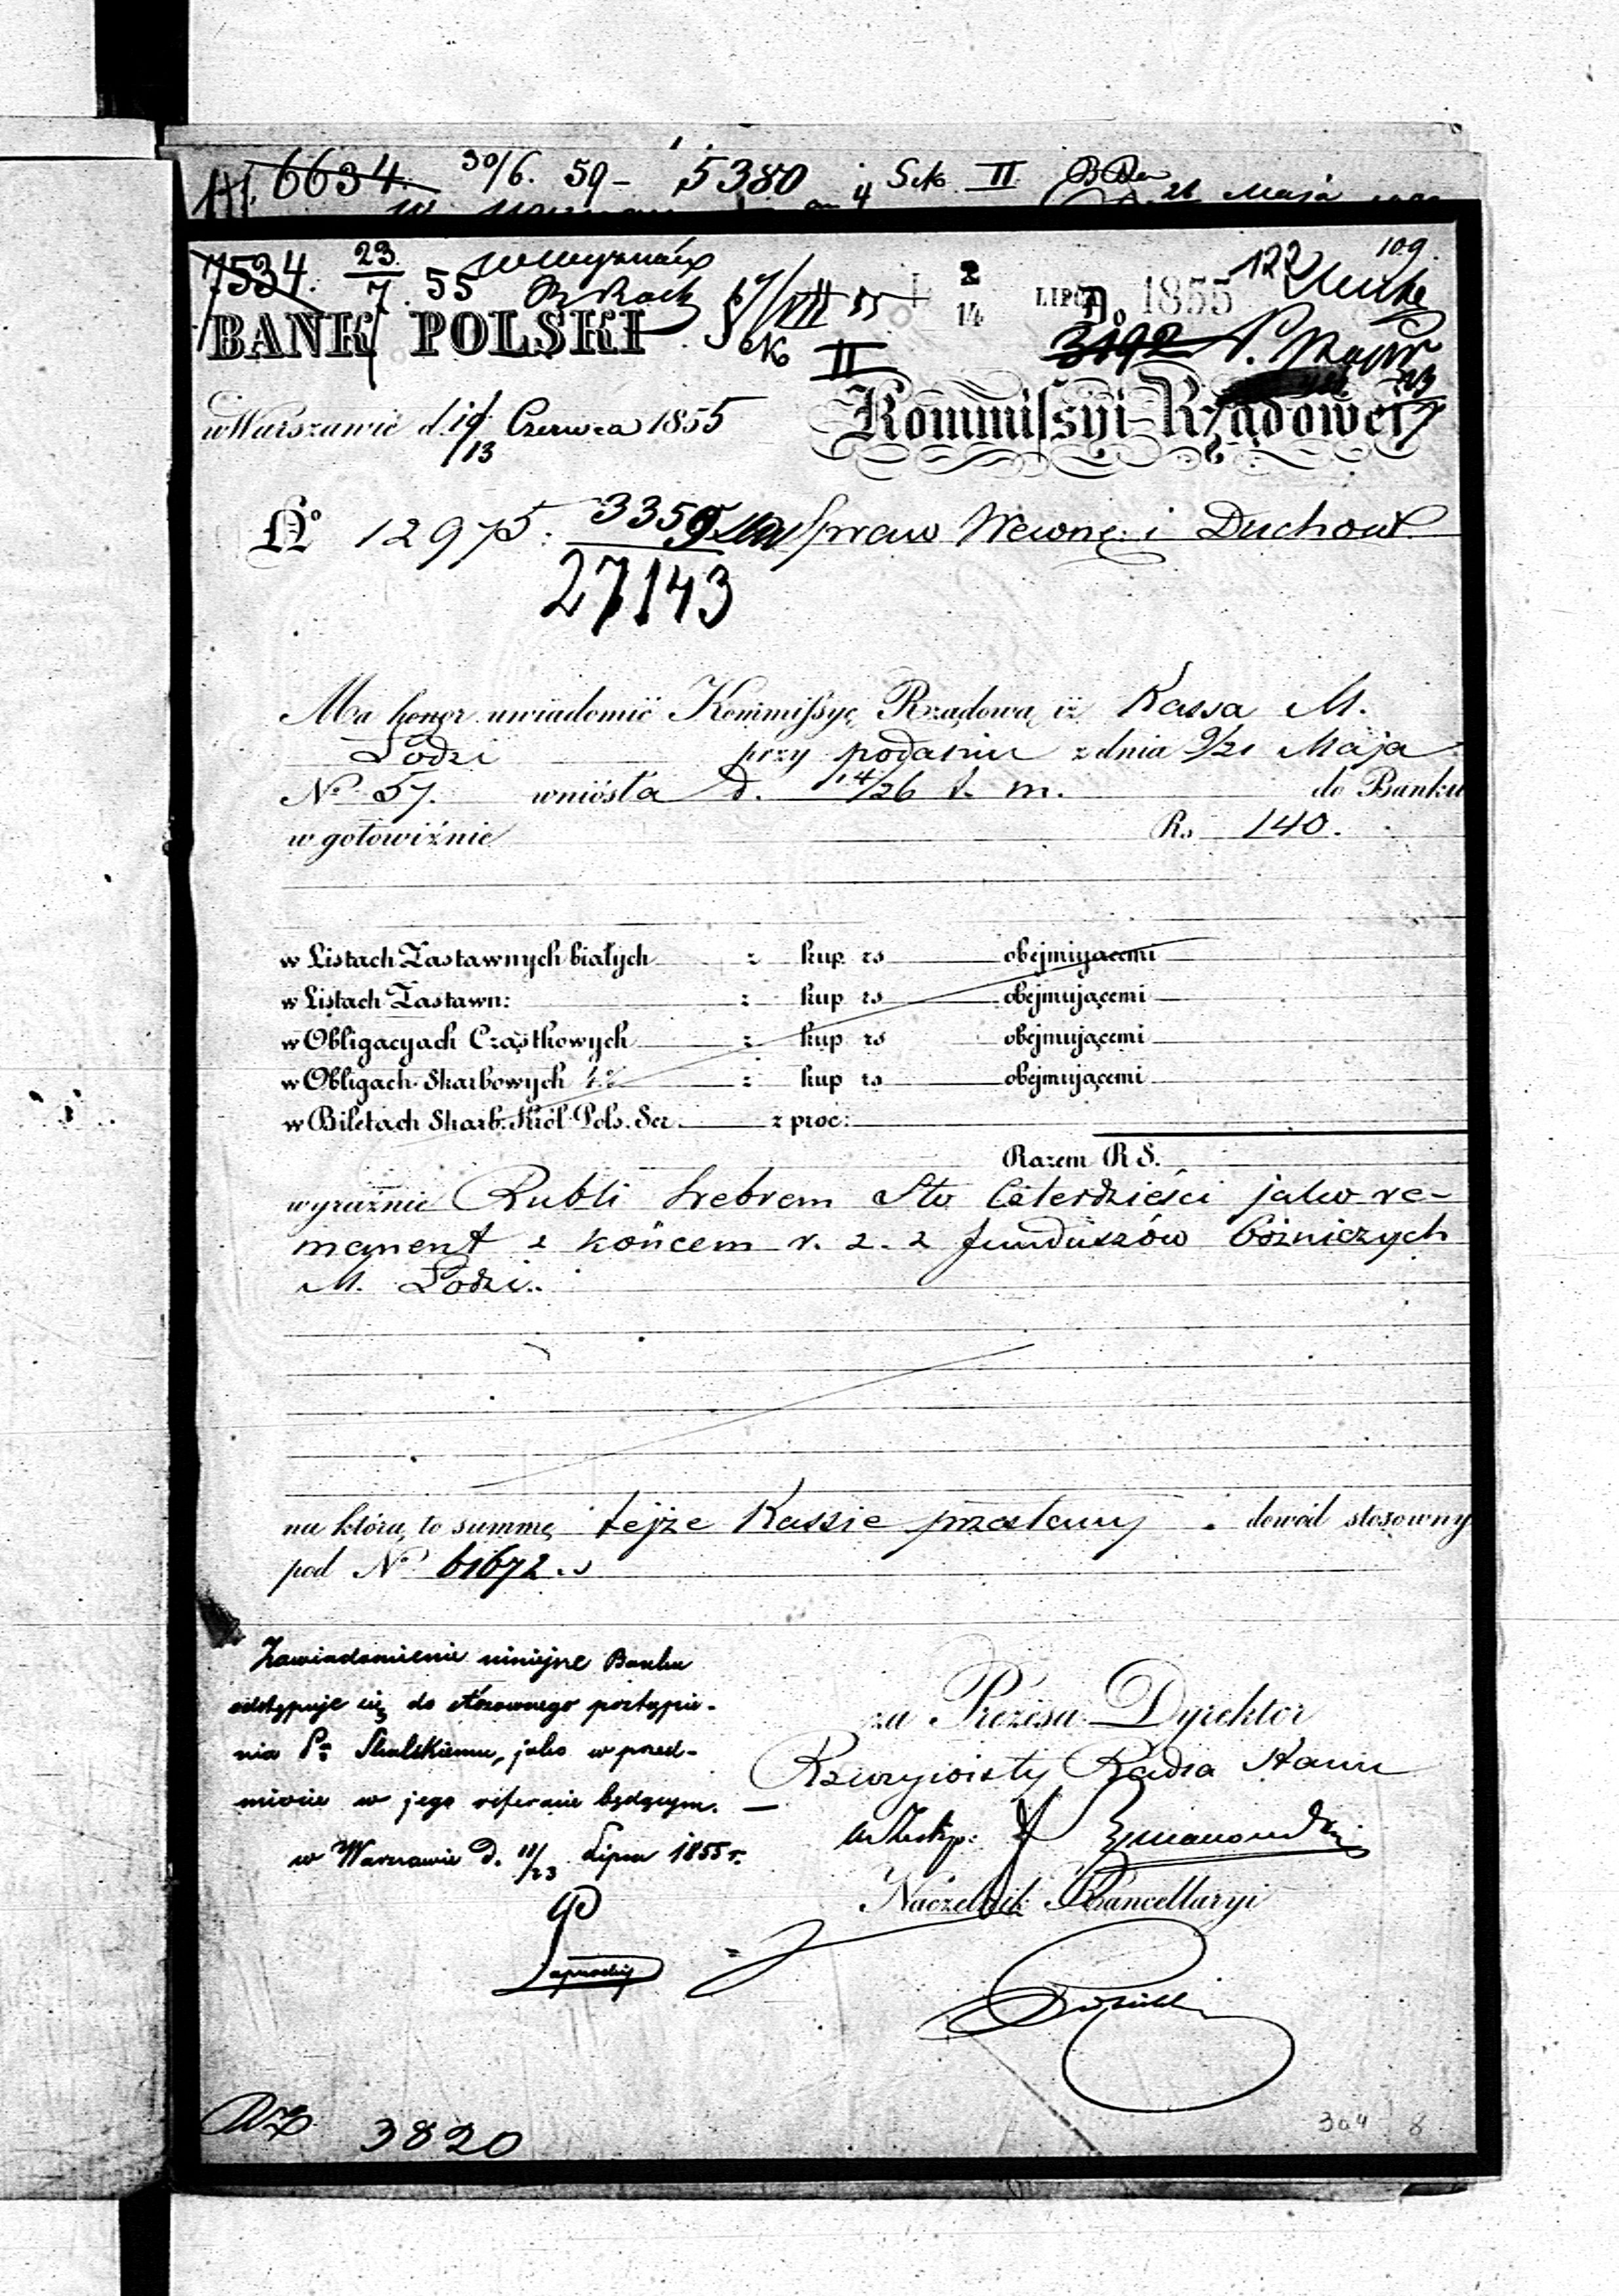 6634. 30/6. 59 - 5380 4 Sek. II
26 Maja
109.
7534. 23/7. 55
2/14 LIPCA 1855
122
BANK POLSKI
Do
3192
II
w Warszawie d. 1/13 Czerwca 1855
Kommissyi Rządowej
No 12975. 3359
Spraw Wewnę. i Duchow.
27143
Ma honor uwiadomić Kommissyę Rządową iż Kassa M.
Łodzi przy podaniu z dnia 9/21 Maja
No 57. wniosła d. 14/26 t. m. do Banku
w gotowiźnie Rs 140.
w Listach Zastawnych białych z kup rs obejmującemi
w Listach Zastawn: z kup rs obejmującemi
w Obligacyach Cząstkowych z kup rs obejmującemi
w Obligach Skarbowych 4% z kup rs obejmującemi
w Biletach Skarb. Król. Pols. Ser. z proc:
Razem R S.
wyraźnie Rubli Srebrem Sto Czterdzieści jako re-
manent z końcem r. z. z funduszów bóżniczych
M. Łodzi.
na którą to summę tejże Kassie przesłany dowód stosowny
pod No 61672.
Zawiadomienie niniejsze Banku
odstępuje się do stosownego postąpie-
nia Pu Skulskiemu, jako w przed-
miocie w jego referacie będącym. —
w Warszawie d. 11/23 Lipca 1855 r.
za Prezesa Dyrektor
Rzeczywisty Radca Stanu
w Zastęp:
Naczelnik Kancellaryi
3820
304 8